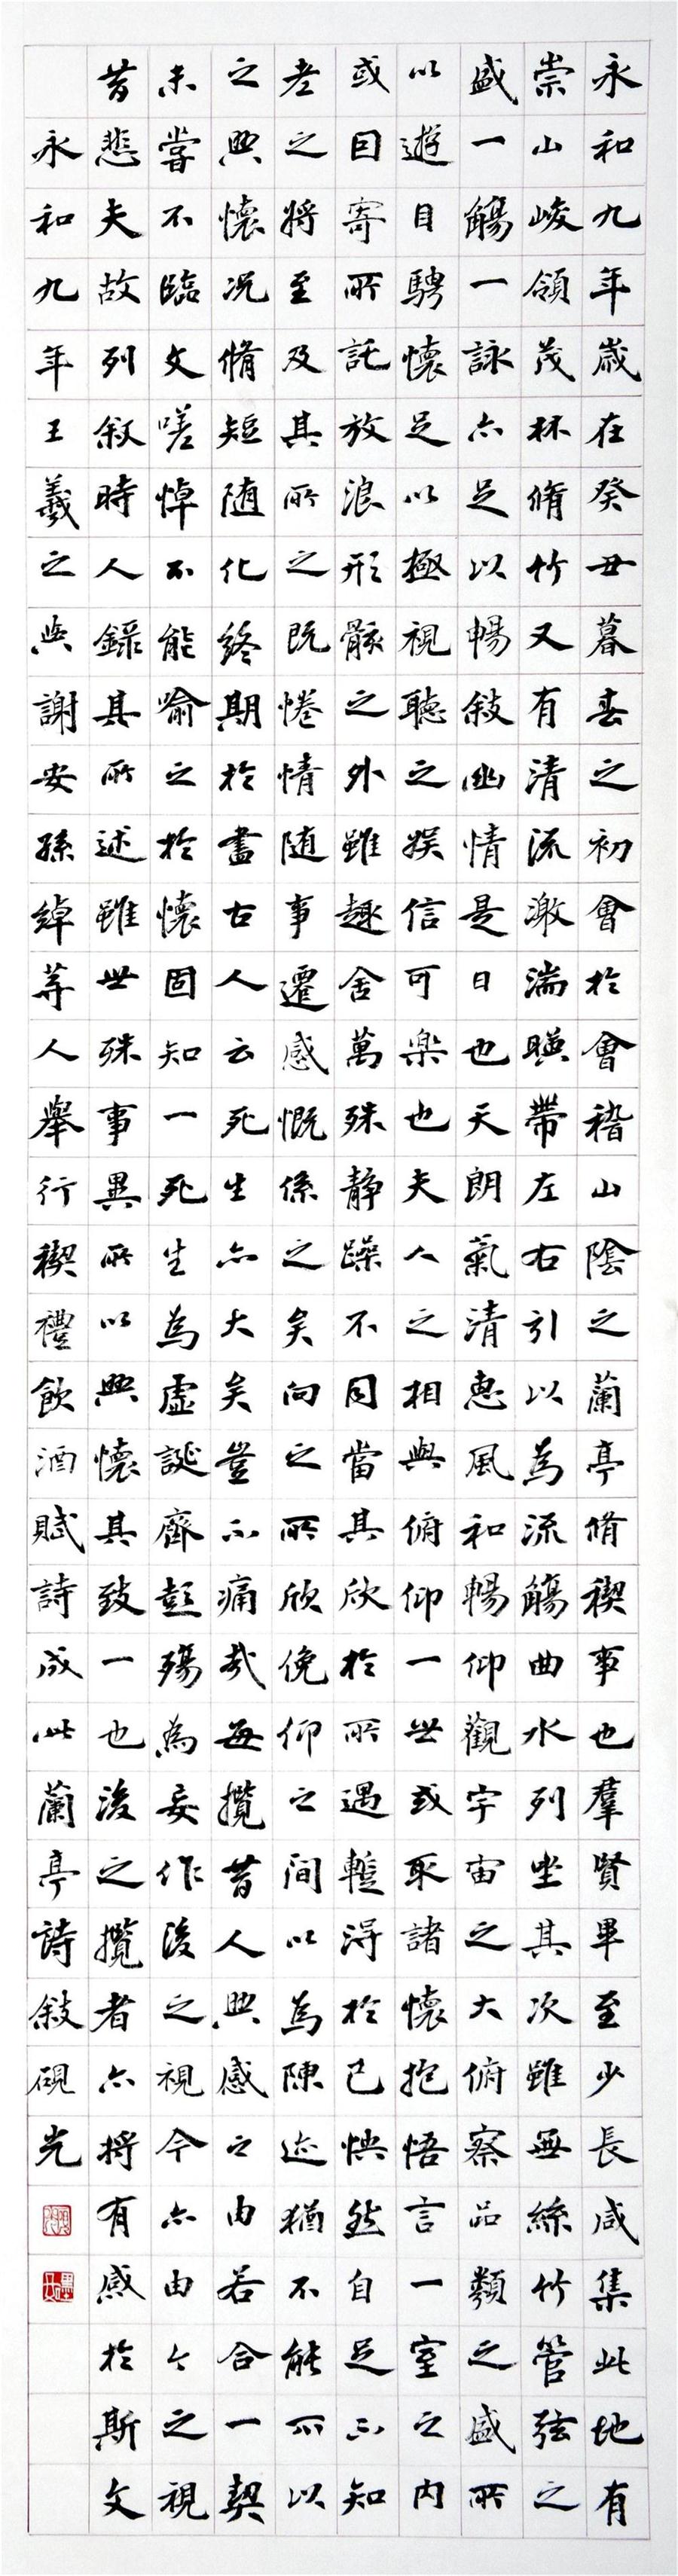 永和九年歲在癸丑暮春之初會於會稽山陰之蘭亭脩禊事也羣賢畢至少長咸集此地有
崇山峻領茂林脩竹又有清流激湍暎帶左右引以為流觴曲水列坐其次雖無絲竹管弦之
盛一觴一詠亦足以暢敘幽情是日也天朗氣清惠風和暢仰觀宇宙之大俯察品類之盛所
以遊目騁懷足以極視聽之娛信可樂也夫人之相與俯仰一世或取諸懷抱悟言一室之内
或因寄所託放浪形骸之外雖趣舍萬殊静躁不同當其欣於所遇暫得於己怏然自足不知
老之將至及其所之既惓情随事遷感慨係之矣向之所欣俛仰之間以為陳迹猶不能不以
之興懷况脩短随化終期於盡古人云死生亦大矣豈不痛哉每攬昔人興感之由若合一契
未嘗不臨文嗟悼不能喻之於懷固知一死生為虚誕齊彭殤為妄作後之視今亦由今之視
昔悲夫故列叙時人錄其所述雖世殊事異所以興懷其致一也後之攬者亦將有感於斯文
永和九年王羲之與謝安孫綽等人舉行禊禮飲酒賦詩成此蘭亭詩敘硯光